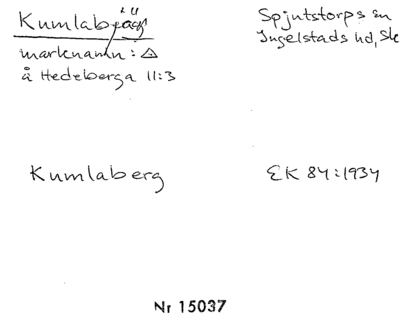 Kumlabjär Spjutstorps sn
marknamn: △ Ingelstads hd, Sk
å Hedeberga 11:3
Kumlaberg EK 84:1934
Nr 15037